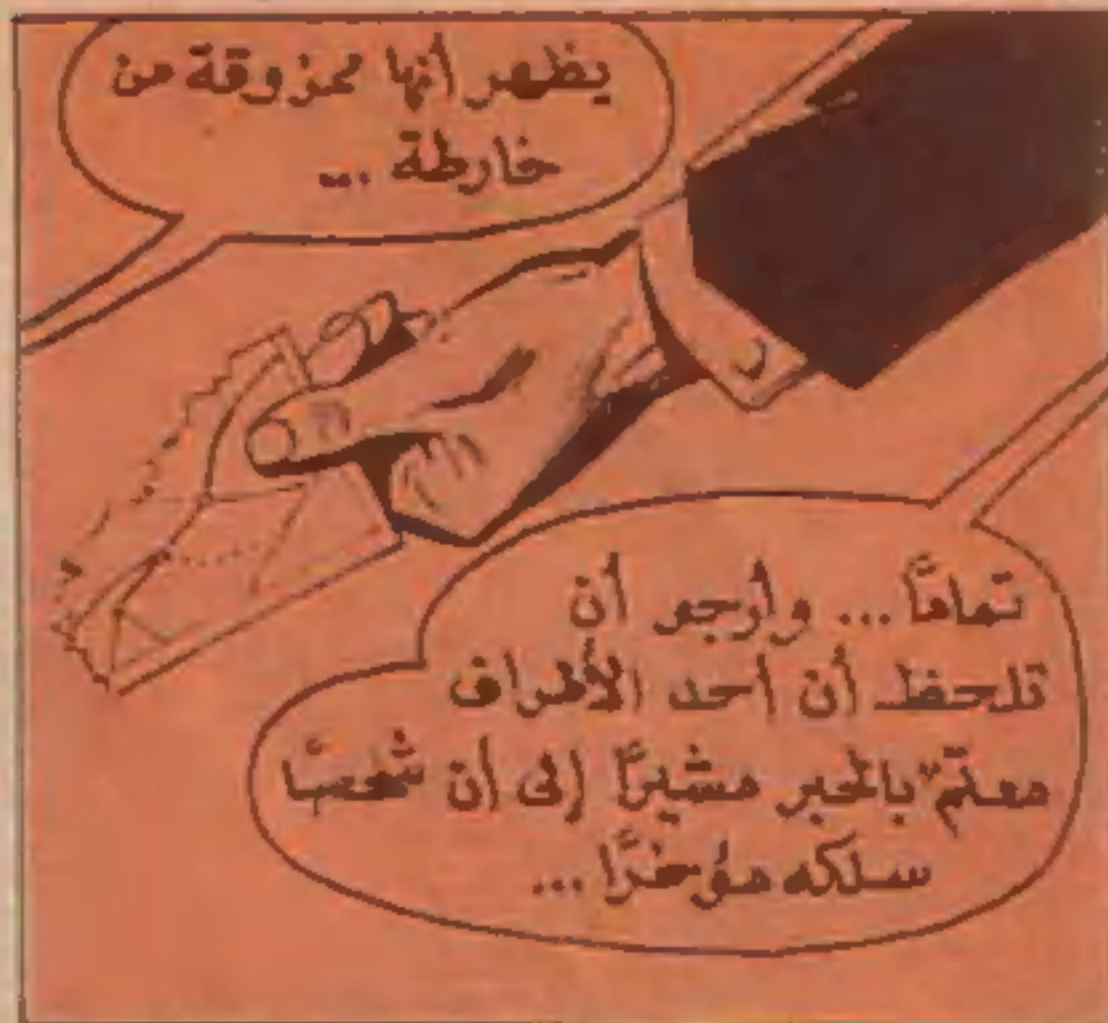 يظهر أنها ممزوقة من
خارطة ...
تمامًا ... وأرجو أن
تلحظ أن أحد الأطراف
معتّم بالحبر مشيرًا إلى أن شخصًا
سلكه مؤخرًا ...